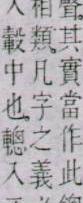 聲其實當作此
相類。凡字之義
入轂中也。入